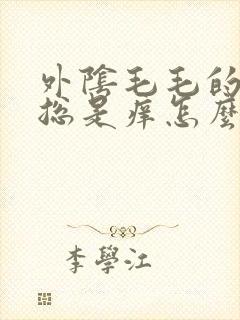 外陰毛毛的
揔是痒怎麼
李學江